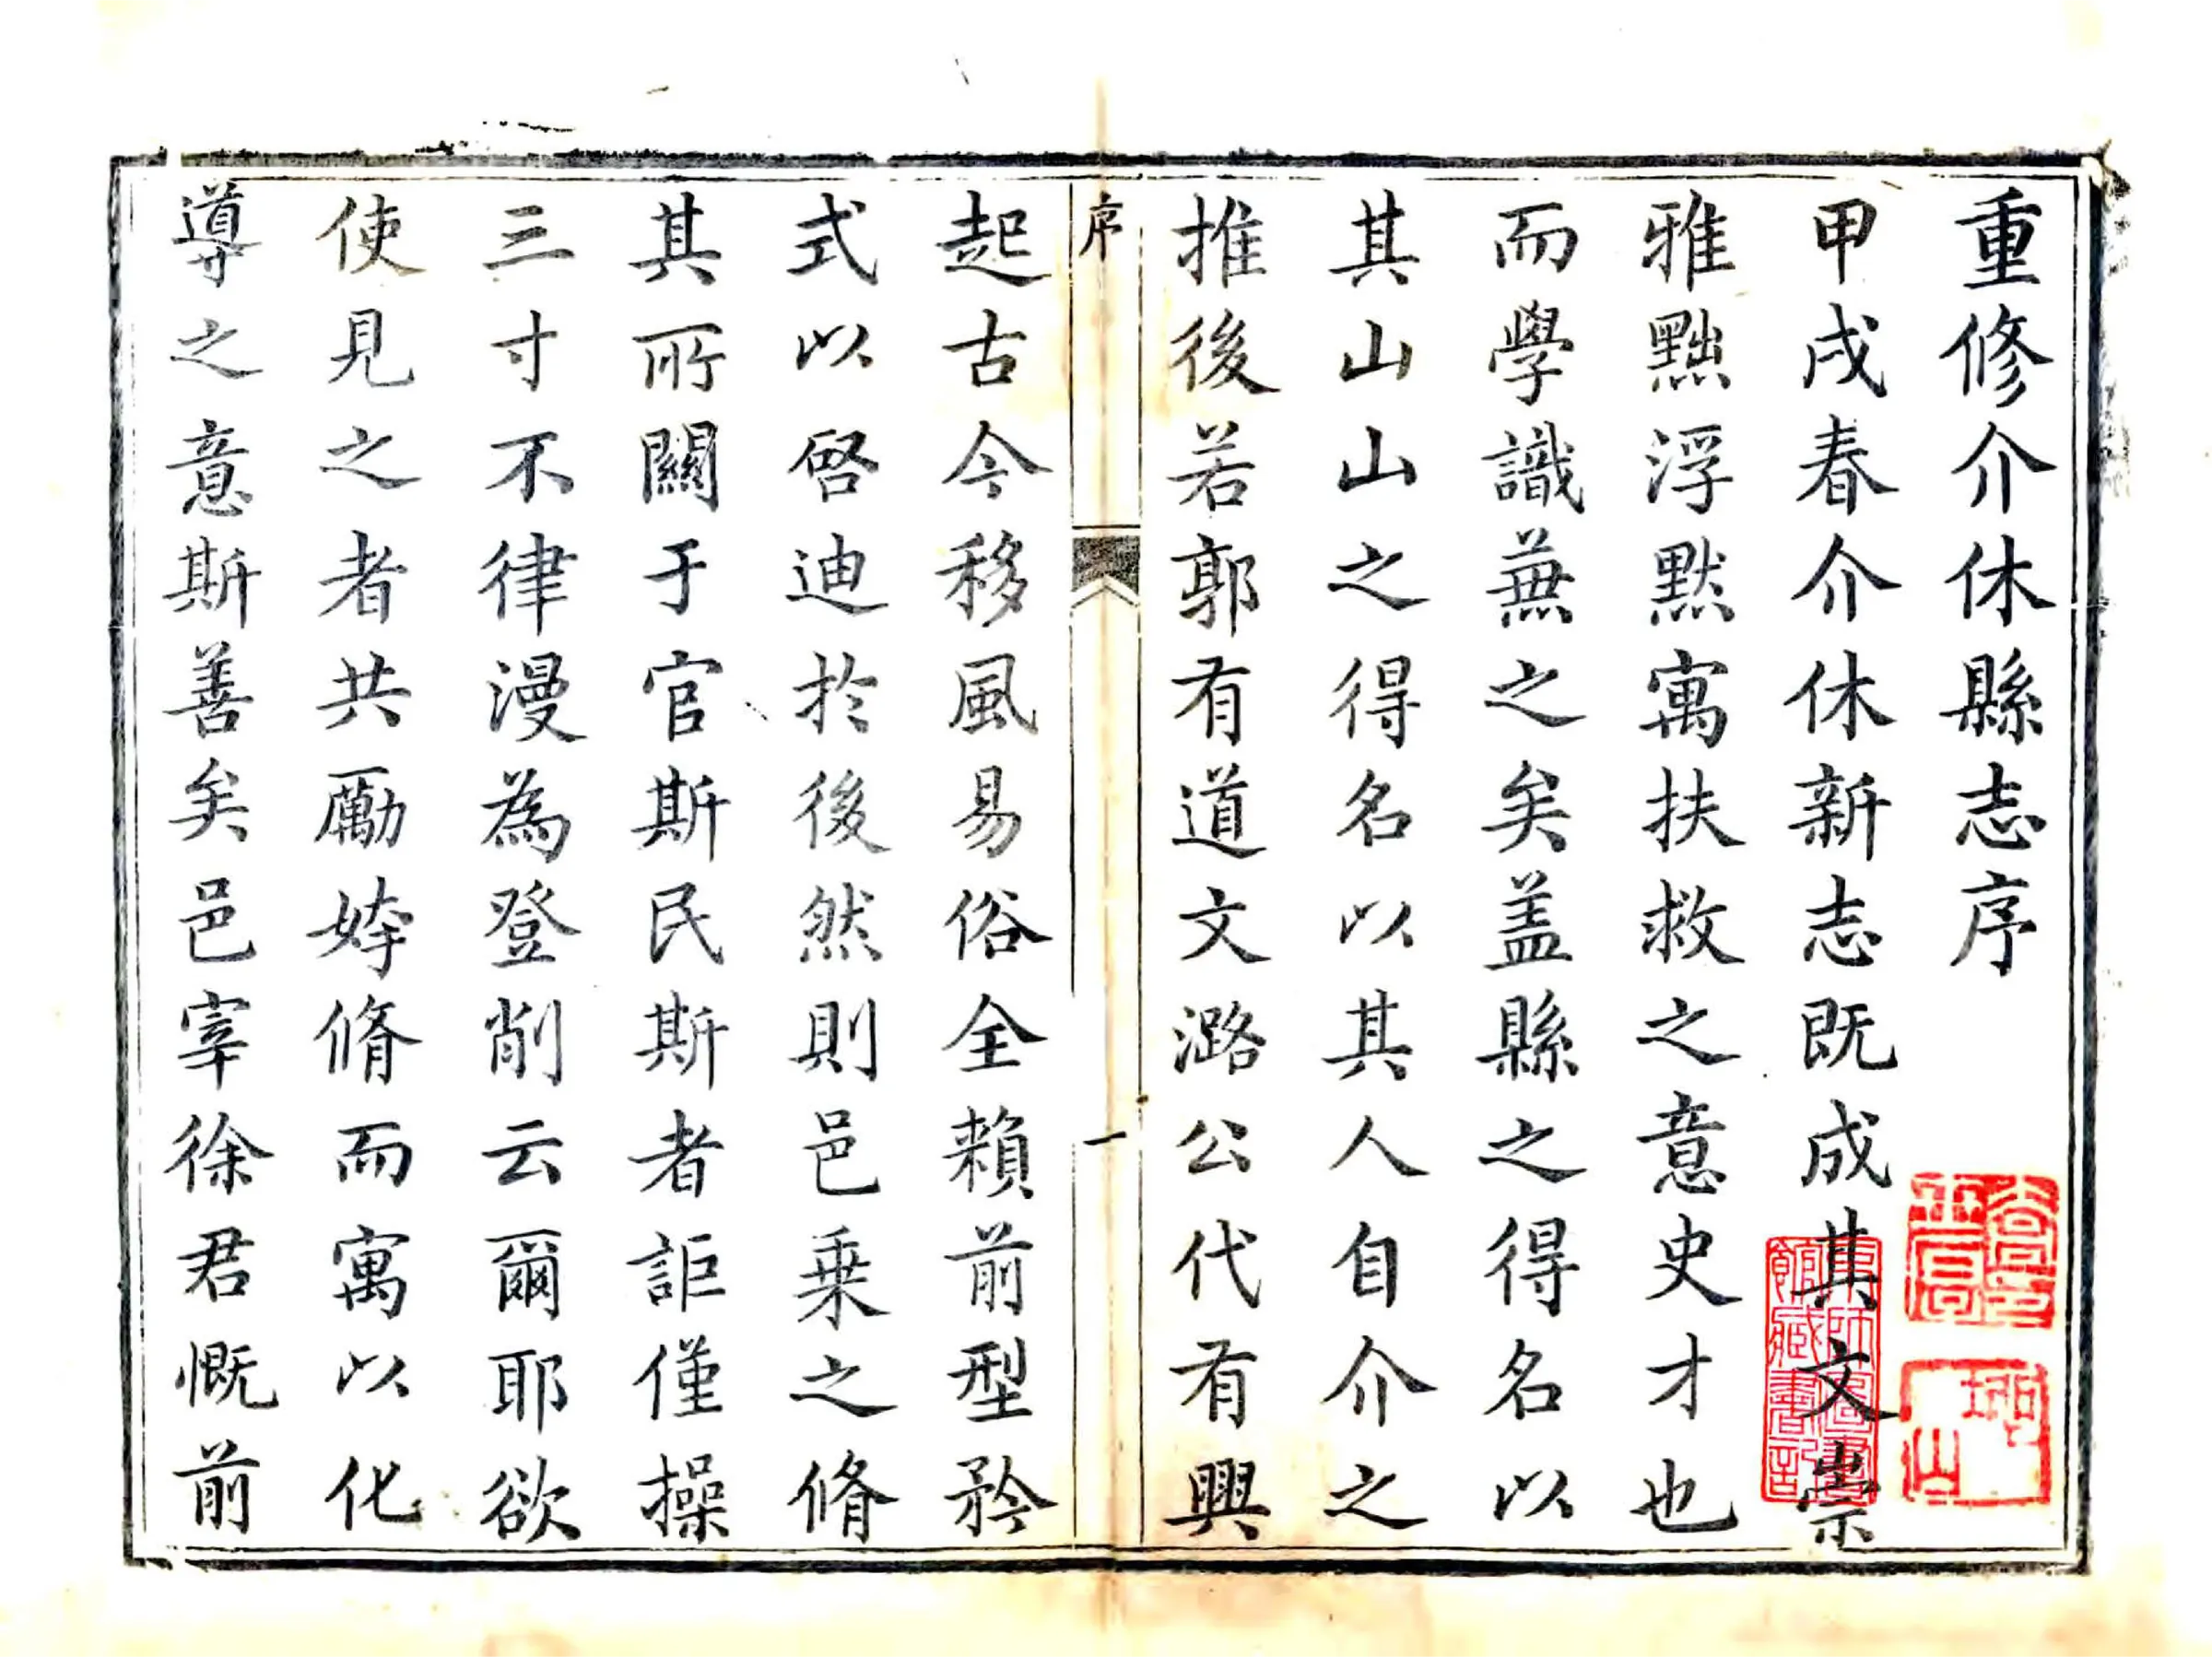 重修介休縣志序
甲戌春介休新志既成其文崇
雅黜浮黙寓扶救之意史才也
而學識蕪之矣盖縣之得名以
其山山之得名以其人自介之
推後若郭有道文潞公代有興
序
一
起古今移風易俗全賴前型矜
式以啓迪於後然則邑乗之脩
其所關于官斯民斯者詎僅操
三寸不律漫為登削云爾耶欲
使見之者共勵婞脩而寓以化
導之意斯善矣邑宰徐君慨前